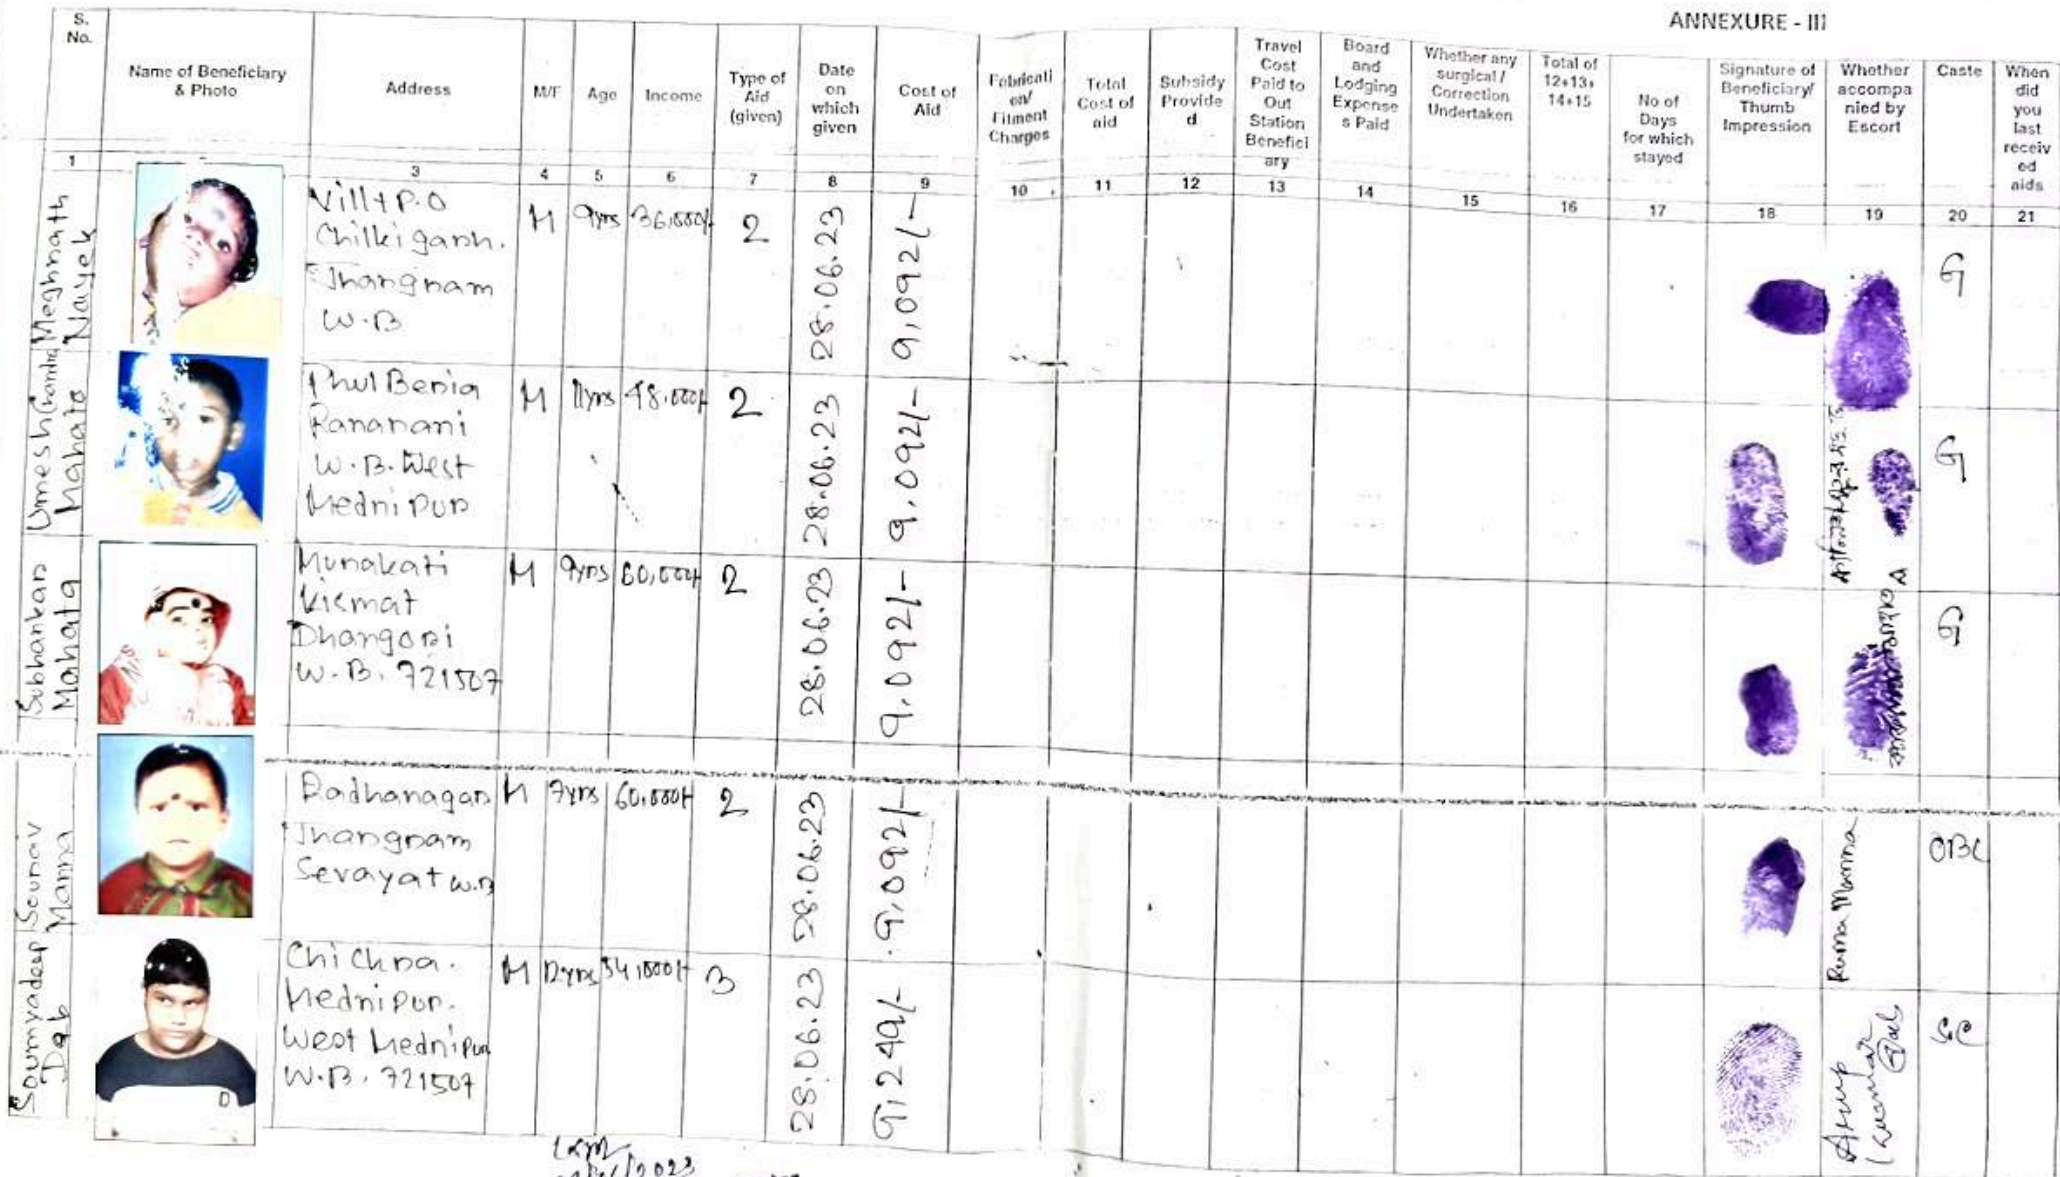 ANNEXURE - III
S. No.
Name of Beneficiary & Photo
Address
M/F
Age
Income
Type of Aid (given)
Date on which given
Cost of Aid
Fabricati on/ Fitment Charges
Total Cost of aid
Subsidy Provide d
Travel Cost Paid to Out Station Benefici ary
Board and Lodging Expense s Paid
Whether any surgical / Correction Undertaken
Total of 12+13+ 14+15
No of Days for which stayed
Signature of Beneficiary/ Thumb Impression
Whether accompa nied by Escort
Caste
When did you last receiv ed aids
1 3 4 5 6 7 8 9 10 11 12 13 14 15 16 17 18 19 20 21
Meghnath Nayek
Vill+P.O
Chilkigarh.
Jhangram
W.B
M 9yrs 36,000/- 2 28.06.23 9,092/- G
Umesh Chandra Mahato
Phul Beria
Ranarani
W.B. West
Mednipur
M 11yrs 48,000/- 2 28.06.23 9,092/- G
Subhankar Mahata
Munakati
Kismat
Dhangori
W.B. 721507
M 9yrs 60,000/- 2 28.06.23 9,092/- G
Sounav Manna
Radhanagar
Jhangram
Sevayat W.B
M 7yrs 60,000/- 2 28.06.23 9,092/- Ruma Manna OBC
Soumyadeep Dab
Chichra.
Mednipur.
West Mednipur
W.B. 721507
M 12yrs 54,000/- 3 28.06.23 9,249/- Anup Kumar SC